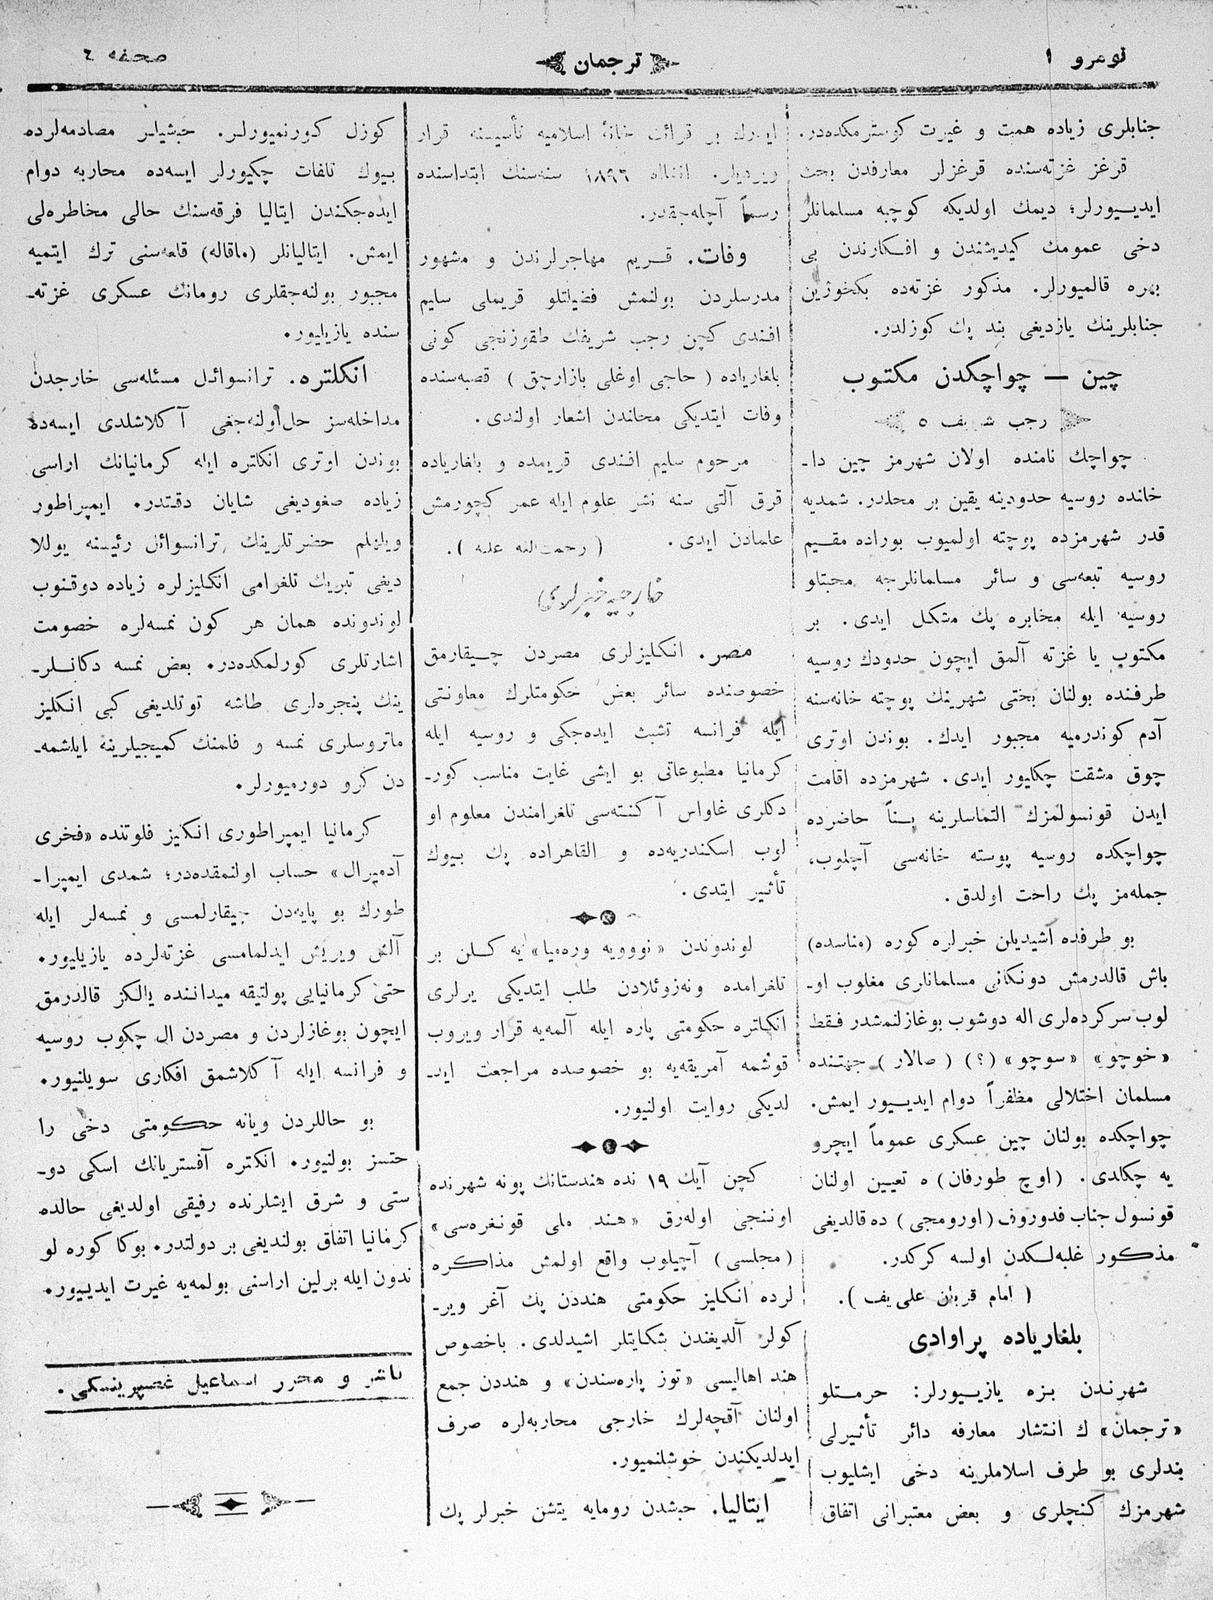 نومرو ١
ترجمان
صحفه ٤
جنابلری زیاده همت و غیرت کوسترمکده‌در.
قرغز غزته‌سنده قرغزلر معارفدن بحث
ایدیـیورلر؛ دیمك اولدیکه کوچبه مسلمانلر
دخی عمومك کیدیشندن و افـکارندن بی
بهره قالمیورلر. مذکور غزته‌ده بکخوژین
جنابلرینك یازدیغی بند پك کوزلدر.
چین — چواچکدن مکتوب
رجب شریف ٥
چواچك نامنده اولان شهرمز چین دا-
خانده روسیه حدودینه یقین بر محلدر. شمدیه
قدر شهرمزده پوچته اولمیوب بوراده مقـیم
روسیه تبعه‌سی و سائر مسلمانلرجه محبتلو
روسیه ایله مخابره پك مشکل ایدی. بر
مکتوب یا غزته آلمق ایچون حدودك روسیه
طرفنده بولنان بختی شهرینك پوچته خانه‌سنه
آدم کوندرمیه مجبور ایدك. بوندن اوتری
چوق مشقت چکلیور ایدی. شهرمزده اقامت
ایدن قونسولمزك التماسلرینه بـناً حاضرده
چواچکده روسیه پوسته خانه‌سی آچلوب،
جمله‌مز پك راحت اولدق.
بو طرفده آشیدیلن خبرلره کوره (مناسده)
باش قالدرمش دونکانی مسلمانلری مغلوب او-
لوب سرکرده‌لری اله دوشوب بوغازلنمشدر فـقط
«خوچو» «سوچو» (؟) ( صالار ) جهتنده
مسلمان اختلالی مظفراً دوام ایدیـیور ایمش.
چواچکده بولنان چین عسکری عموماً ایچرو
یه چکلدی. (اوچ طورفان) ه تعیین اولنان
قونسول جناب فدوروف (اورومجی) ده قالدیغی
مذکور غلبه‌لـکدن اولسه کرکدر.
( امام قربان علی یف ).
بلغاریاده پراوادی
شهرندن بزه یازیـیورلر: حرمـتلو
«ترجمان» ك انتشار معارفه دائر تأثیرلی
بندلری بو طرف اسلاملرینه دخی ایشلیوب
شهرمزك کنچلری و بعض معتبرانی اتفاق
ایدرك بر قرائت خانهٔ اسلامیه تأسیسنه قرار
ویردیلر. انشالله ١٨٩٦ سنه‌سنك ابتداسنده
رسماً آچله‌جقدر.
وفات. قـریم مهاجرلرندن و مشهور
مدرسلردن بولنمش فضیلتلو قریملی سلیم
افـندی کچن رجب شریفك طقوزنجی کونی
بلغاریاده ( حاجی اوغلی بازارجق ) قصبه‌سنده
وفات ایتدیکی محاندن اشعار اولندی.
مرحوم سلیم افندی قریمده و بلغاریاده
قرق آلتی سنه نشر علوم ایله عمر کچورمش
علمادن ایدی. ( رحمت‌الله علیه ).
خارجیه خبرلری
مصر. انکلیزلری مصردن چـیقارمق
خصوصنده سائر بعض حکومتلرك معاونتی
ایله فرانسه تشبث ایده‌جکی و روسیه ایله
کرمانیا مطبوعاتی بو ایشی غایت مناسب کور-
دکلری غاواس آکنته‌سی تلغرامندن معلوم او
لوب اسکندریه‌ده و القاهراده پك بیوك
تأثیر ایتدی.
لوندوندن «نووویه وره‌میا» یه کلن بر
تلغرامده ونه‌زوئلادن طلب ایتدیکی یرلری
انکلتره حکومتی پاره ایله آلمه‌یه قرار ویروب
قوشمه آمریقه‌یه بو خصوصده مراجعت اید-
لدیکی روایت اولنیور.
کچن آیك ١٩ نده هندستانك پونه شهرنده
اوننجی اوله‌رق «هند ملی قونغره‌سی»
(مجلسی) آچیلوب واقع اولمش مذاکره
لرده انکلیز حکومتی هنددن پك آغر ویر-
کولر آلدیغندن شکایتلر اشیدلدی. باخصوص
هند اهالیسی «توز پاره‌سندن» و هنددن جمع
اولنان آقچه‌لرك خارجی محاربه‌لره صرف
ایدلدیکندن خوشلنمیور.
ایتالیا. حبشدن رومایه یتشن خبرلر پك
کوزل کورنمیورلر. حبشیلر مصادمه‌لرده
بیوك تلفات چکیورلر ایسه‌ده محاربه دوام
ایده‌جکندن ایتالیا فرقه‌سنك حالی مخاطره‌لی
ایمش. ایتالیانلر (ماقاله) قلعه‌سنی ترك ایتمیه
مجبور بولنه‌جقلری رومانك عسکری غزته-
سنده یازیلیور.
انکلتره. ترانسوائل مسئله‌سی خارجدن
مداخله‌سز حل‌اولنه‌جغی آکلاشلدی ایسه‌ده
بوندن اوتری انکلتره ایله کرمانیانك اراسی
زیاده صغودیغی شایان دقتدر. ایمپراطور
ویلهلم حضرتلرینك ترانسوائل رئیسنه یوللا
دیغی تبریك تلغرامی انکلیزلره زیاده دوقنوب
لوندونده همان هر کون نمسه‌لره خصومت
اشارتلری کورلمکده‌در. بعض نمسه دکانلر-
ینك پنجره‌لری طاشه توتلدیغی کبی انکلیز
ماتروسلری نمسه و فلمنك کمیجیلرینه ایلشمه-
دن کرو دورمیورلر.
کرمانیا ایمپراطوری انکلیز فلوتنده «فخری
آدمیرال» حساب اولنمقده‌در؛ شمدی ایمپرا-
طورك بو پایه‌دن چیقارلمسی و نمسه‌لر ایله
آلش ویریش ایدلمامسی غزته‌لرده یازیلیور.
حتی کرمانیایی پولتیقه میداننده یالکز قالدرمق
ایچون بوغازلردن و مصردن ال چکوب روسیه
و فرانسه ایله آکلاشمق افکاری سویلنیور.
بو حاللردن ویانه حکومتی دخی را
حتسز بولنیور. انکلتره آفستریانك اسکی دو-
ستی و شرق ایشلرنده رفیقی اولدیغی حالده
کرمانیا اتفاق بولندیغی بر دولتدر. بوکا کوره لو
ندون ایله برلین اراسنی بولمه‌یه غیرت ایدیـیور.
ناشر و محرر اسماعیل غصپرینسکی.